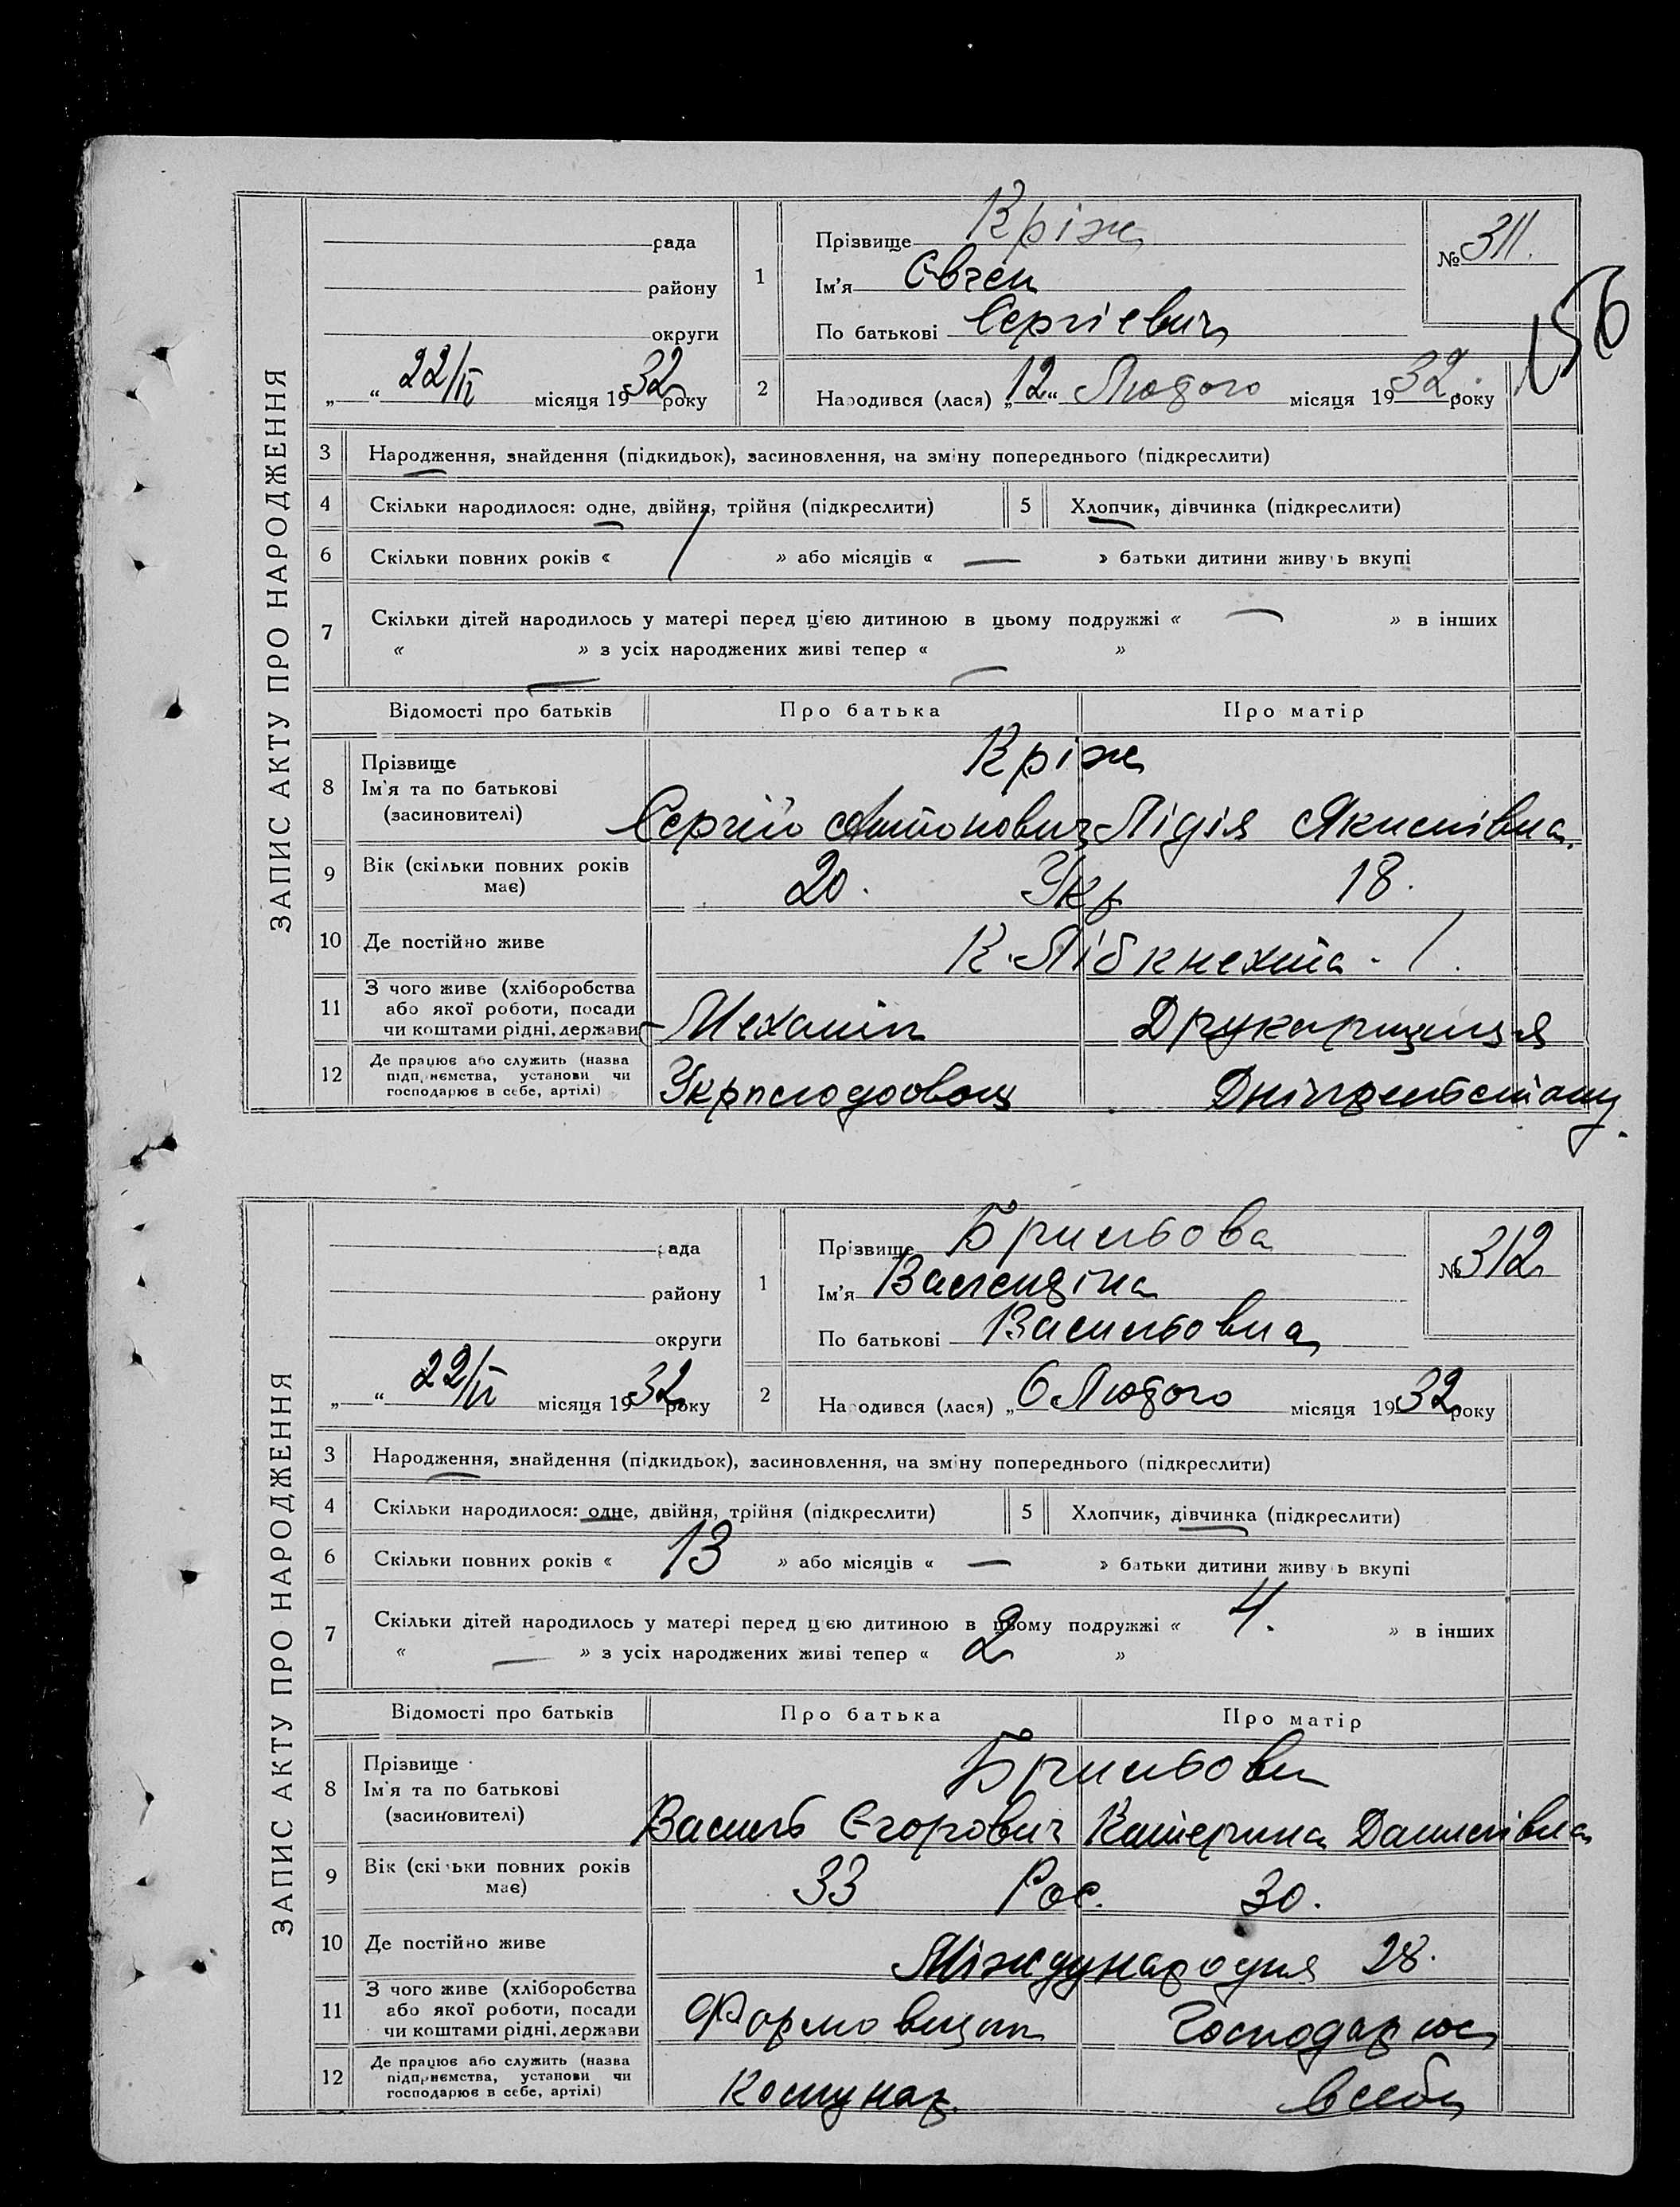 156
ЗАПИС АКТУ ПРО НАРОДЖЕННЯ
рада
району
округи
„ “ 22/II місяця 1932 року
1
Прізвище Кріж
Ім'я Євген
По батькові Сергієвич
№ 311.
2
Народився (лася) „12“ Лютого місяця 1932 року
3 Народження, знайдення (підкидьок), засиновлення, на зміну попереднього (підкреслити)
4 Скільки народилося: одне, двійня, трійня (підкреслити) 5 Хлопчик, дівчинка (підкреслити)
6 Скільки повних років « 1 » або місяців « — » батьки дитини живуть вкупі
7 Скільки дітей народилось у матері перед цією дитиною в цьому подружжі « — » в інших
« — » з усіх народжених живі тепер « — »
Відомості про батьків Про батька Про матір
8 Прізвище
Ім'я та по батькові
(засиновителі)
Кріж
Сергій Антонович Лідія Якимівна.
9 Вік (скільки повних років має) 20. Укр 18.
10 Де постійно живе К. Лібкнехта - 1.
11 З чого живе (хліборобства
або якої роботи, посади
чи коштами рідні, держави
Механік Друкарщиця
12 Де працює або служить (назва
підприємства, установи чи
господарює в себе, артілі)
ЗАПИС АКТУ ПРО НАРОДЖЕННЯ
рада
району
округи
„ “ 22/II місяця 1932 року
1
Прізвище Брильова
Ім'я Валендіна
По батькові Васильовна
№ 312
2
Народився (лася) „6 Лютого місяця 1932 року
3 Народження, знайдення (підкидьок), засиновлення, на зміну попереднього (підкреслити)
4 Скільки народилося: одне, двійня, трійня (підкреслити) 5 Хлопчик, дівчинка (підкреслити)
6 Скільки повних років « 13 » або місяців « — » батьки дитини живуть вкупі
7 Скільки дітей народилось у матері перед цією дитиною в цьому подружжі « 4. » в інших
« — » з усіх народжених живі тепер « 2 »
Відомості про батьків Про батька Про матір
8 Прізвище
Ім'я та по батькові
(засиновителі)
Брильови
Василь Єгорович Катерина Данилівна
9 Вік (скільки повних років має) 33 Рос. 30.
10 Де постійно живе Міждународня 28.
11 З чого живе (хліборобства
або якої роботи, посади
чи коштами рідні, держави
Формовщик Господарює
12 Де працює або служить (назва
підприємства, установи чи
господарює в себе, артілі)
Комунар. в себе